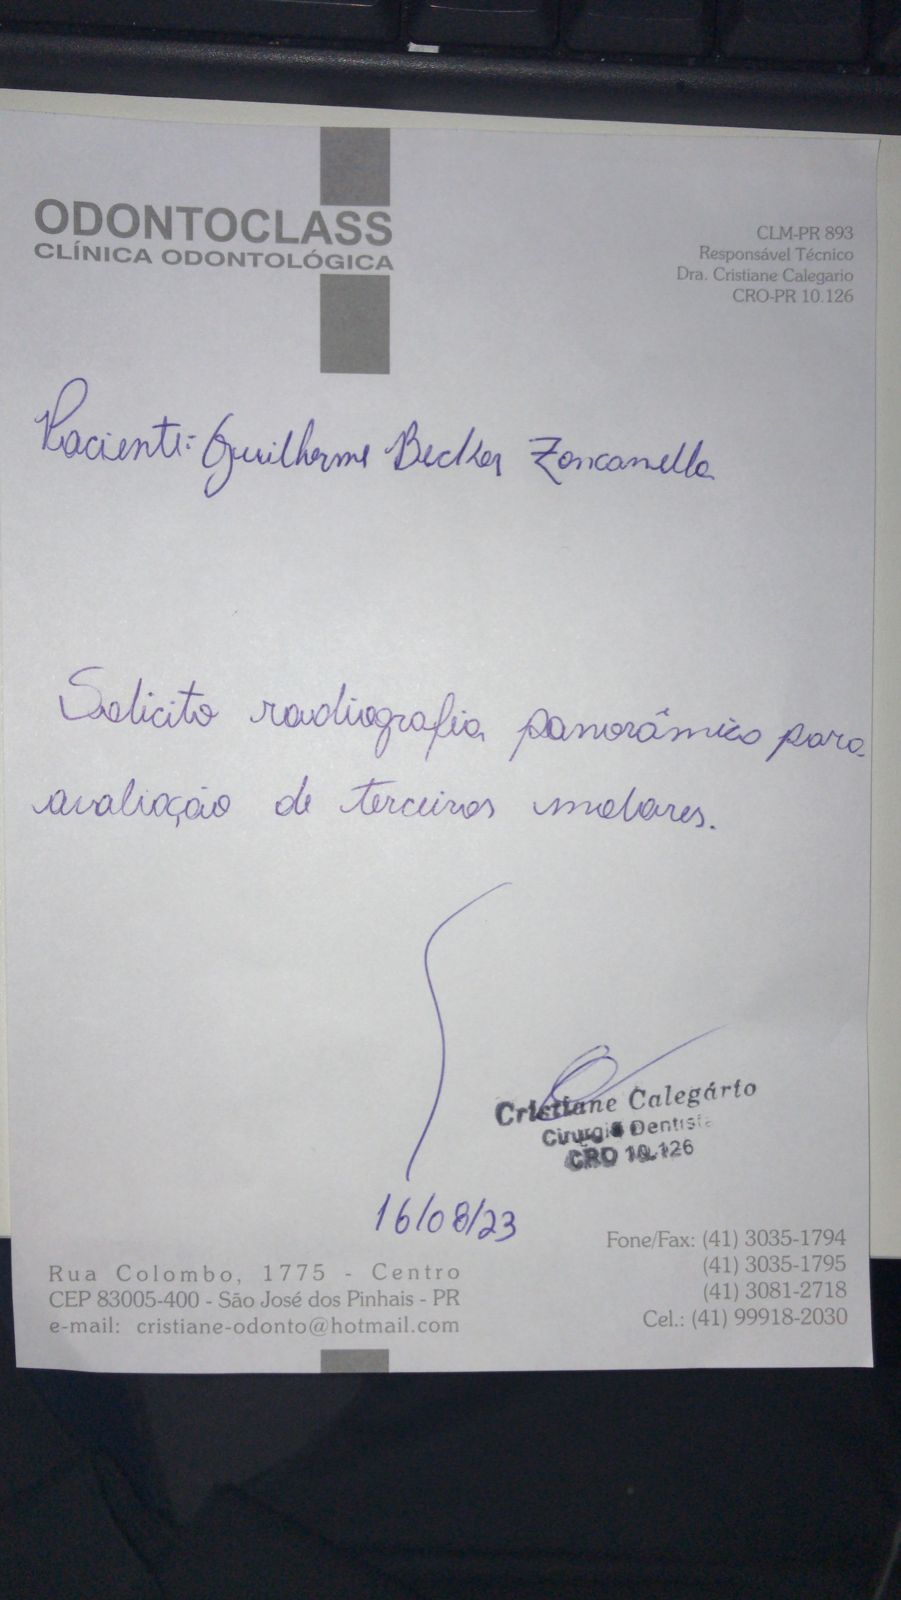 ODONTOCLASS
CLÍNICA ODONTOLÓGICA
CLM-PR 893
Responsável Técnico
Dra. Cristiane Calegario
CRO-PR 10.126
Paciente: Guilherme Becker Zancanella
Solicito radiografia panorâmica para
avaliação de terceiros molares.
Cristiane Calegárto
Cirurgiã Dentista
CRO 10.126
16/08/23
Rua Colombo, 1775 - Centro
CEP 83005-400 - São José dos Pinhais - PR
e-mail: cristiane-odonto@hotmail.com
Fone/Fax: (41) 3035-1794
(41) 3035-1795
(41) 3081-2718
Cel.: (41) 99918-2030